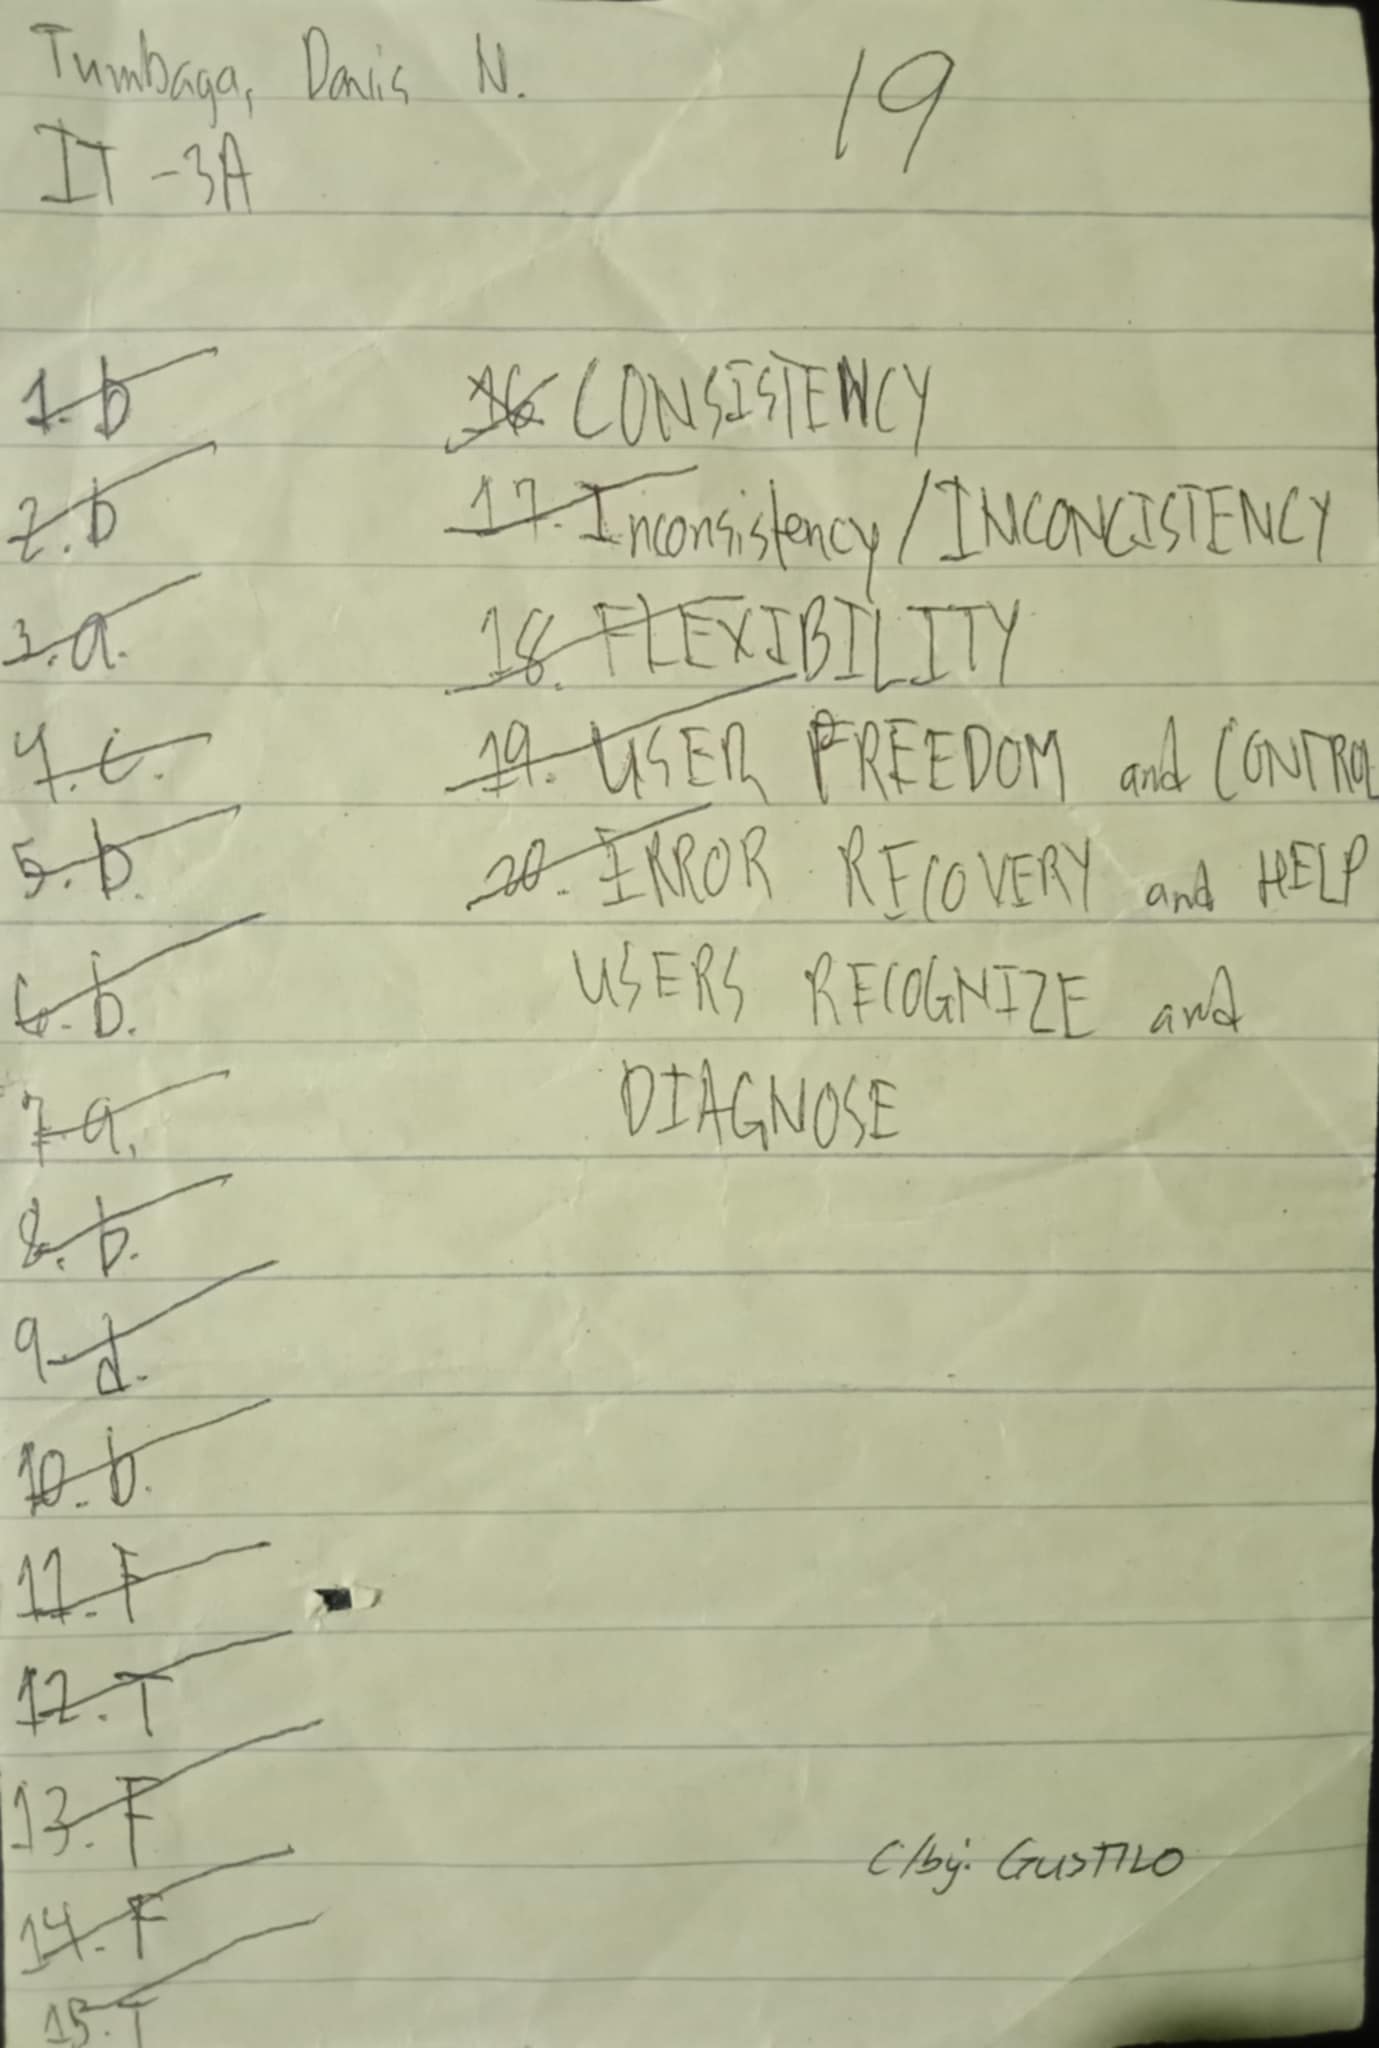 Tumbaga, Danis N.
19
IT - 3A
1. b
2. b
3. a.
4. c.
5. b.
6. b.
7. a.
8. b.
9. d.
10. b.
11. F
12. T
13. F
14. F
15. T
16. CONSISTENCY
17. Inconsistency / INCONCISTENCY
18. FLEXIBILITY
19. USER FREEDOM and CONTROL
20. ERROR RECOVERY and HELP
USERS RECOGNIZE and
DIAGNOSE
C/by: GUSTILO